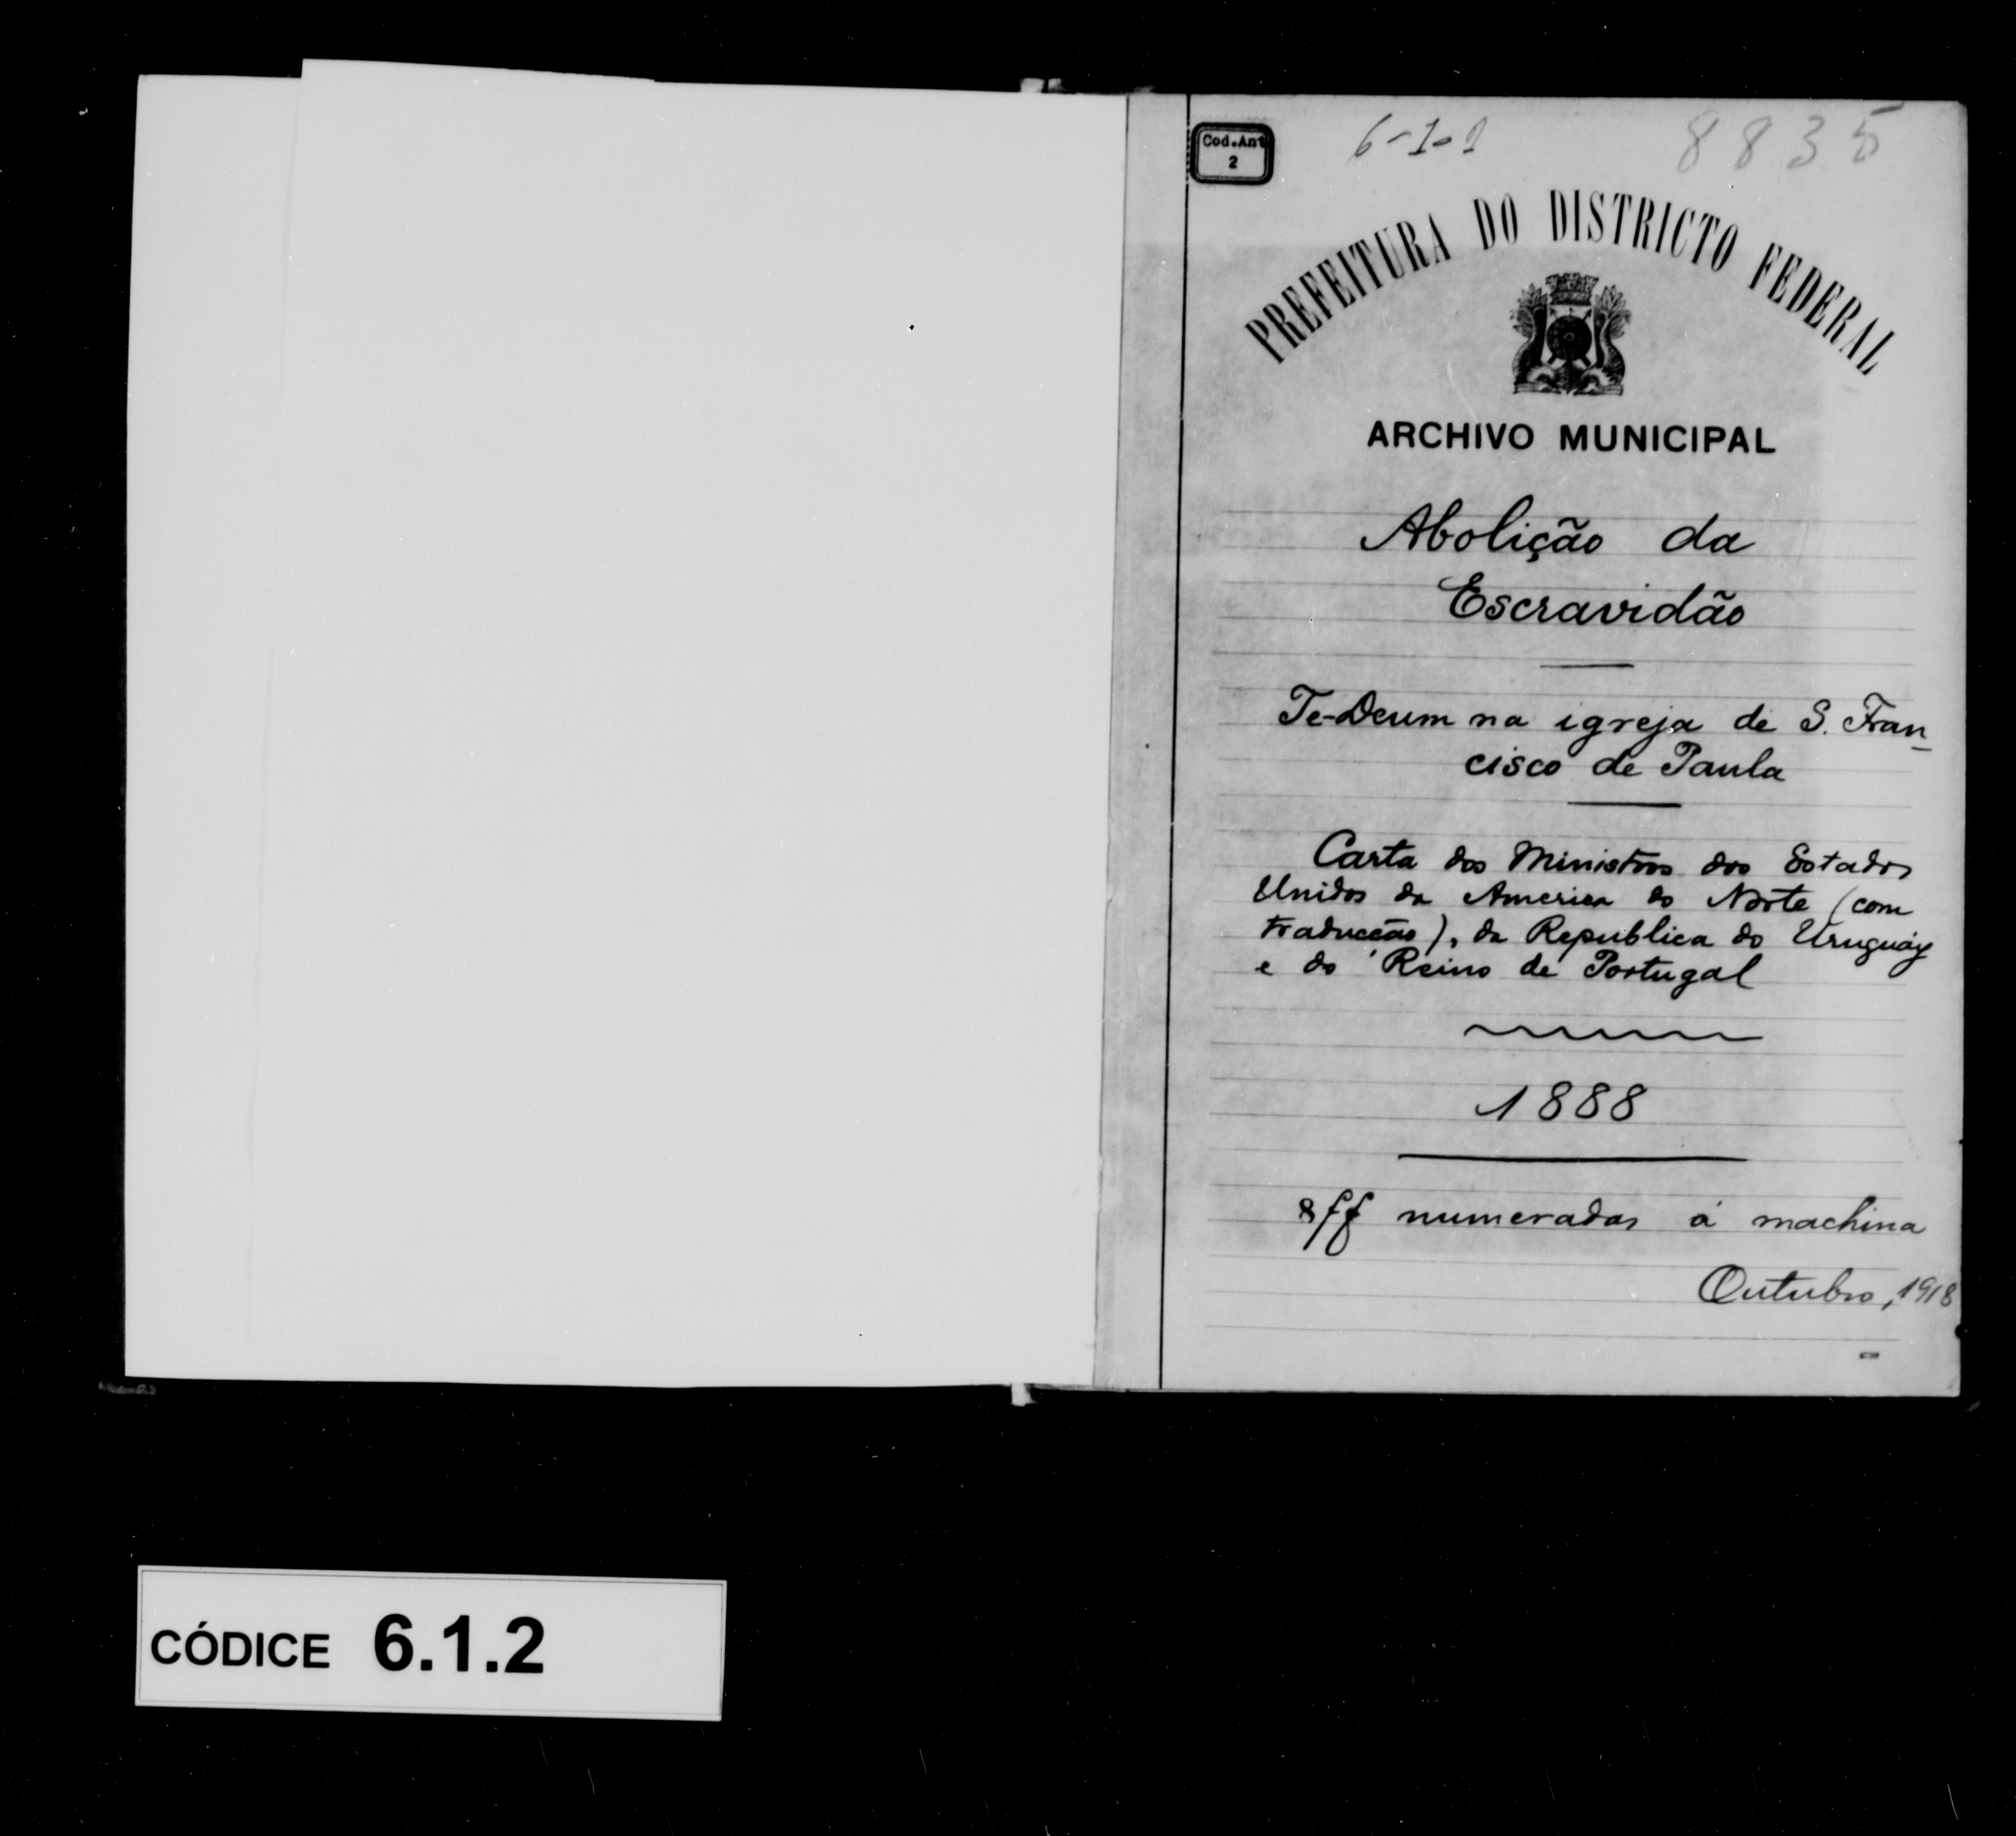 Cod.Ant
2
6-1-1
8835
PREFEITURA DO DISTRICTO FEDERAL
ARCHIVO MUNICIPAL
Abolição da
Escravidão
Te-Deum na igreja de S. Fran-
cisco de Paula
Carta dos Ministros dos Estados
Unidos da America do Norte (com
traducção), da Republica do Uruguáy
e do Reino de Portugal
1888
8 ff numeradas á machina
Outubro, 1918
CÓDICE 6.1.2